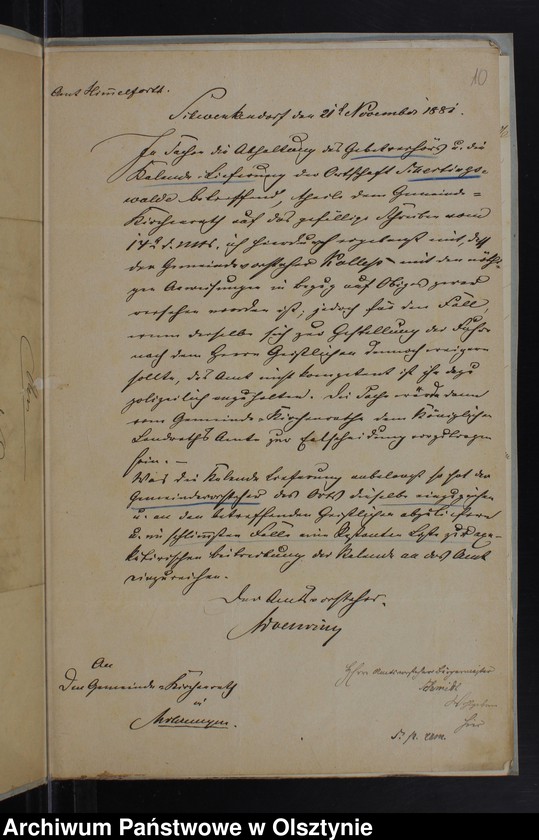 Amt Himmelforth.
10
den 21t November 1881.
In Sachen die Abhaltung des Gebetverhörs u. die
Kalende-Lieferung der Ortschaft Schertings-
walde betreffend, theile dem Gemeinde-
Kirchenrath auf das gefällige Schreiben vom
14t d. Mts. ich hierdurch ergebenst mit, daß
der Gemeindevorsteher mit den nöthi-
gen Anweisungen in bezug auf Obiges
versehen worden ist; jedoch für den Fall,
wenn derselbe sich zur Gestellung der Fuhre
nach dem Herrn Geistlichen dennoch weigern
sollte, das Amt nicht kompetent ist ihn dazu
polizeilich anzuhalten. Die Sache würde dann
vom Gemeinde-Kirchenrathe dem Königlichen
Landraths Amte zur Entscheidung vorzutragen
sein. —
Was die Kalende Lieferung anbelangt so hat der
Gemeindevorsteher des Orts dieselbe einzuziehen
u. an den betreffenden Geistlichen abzuliefern
u. im schlimmsten Falle eine Restanten Liste zur exe-
kutivischen Beitreibung der Kalende an das Amt
einzureichen.
Der Amtsvorsteher.
An
Den Gemeinde-Kirchenrath
in
Mohrungen.
Herrn Bürgermeister
Schmidt
hier
Archiwum Państwowe w Olsztynie